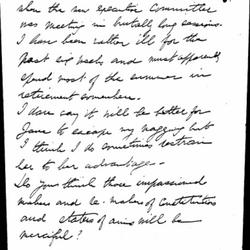 when the new executive Committee
was meeting in brutally long sessions.
I have been rather ill for the
past six weeks and must apparently
spend most of the summer in
retirement somewhere.
I dare say it will be better for
Jane to escape my nagging but
I think I do sometimes restrain
her to her advantage.
Do you think those impassioned
makers and re-makers of Constitutions
and states of aims will be
merciful?